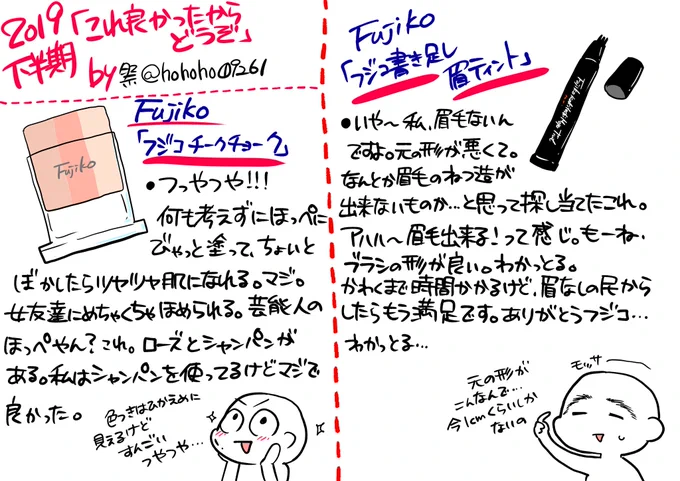 2019「これ良かったから
どうぞ」
下半期
by 祭@hohoho09261
Fujiko
「フジコチークチョーク」
Fujiko
•つっやつや!!!
何も考えずにほっぺに
びゃっと塗って、ちょいと
ぼかしたらツヤツヤ肌になれる。マジ。
女友達にめちゃくちゃほめられる。芸能人の
ほっぺやん?これ。ローズとシャンパンが
ある。私はシャンパンを使ってるけどマジで
良かった。
色つきはひかえめに
見えるけど
すんごい
つやつや…
Fujiko
「フジコ書き足し
眉ティント」
•いや〜私、眉毛ないん
ですよ。元の形が悪くて。
なんとか眉毛のねつ造が
出来ないものか…と思って探し当てたこれ。
アハハ〜眉毛出来る!って感じ。もーね、
ブラシの形が良い。わかっとる。
かわくまで時間かかるけど、眉なしの民から
したらもう満足です。ありがとうフジコ…
わかっとる…
元の形が
こんなんで…
今1cmくらいしか
ないの
モッサー